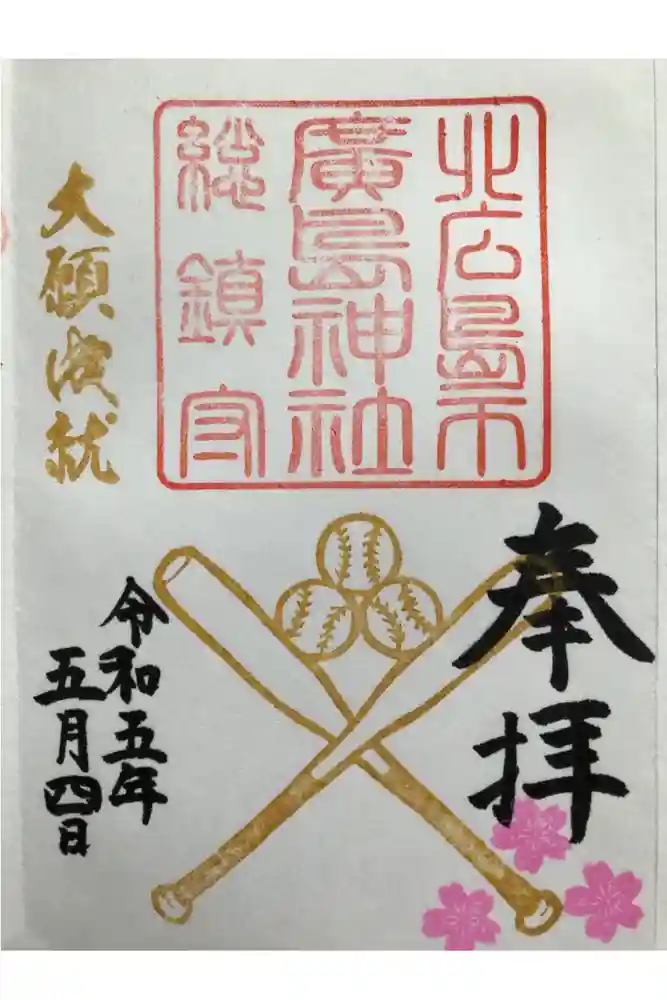 北広島市
廣島神社
総鎮守
奉拝
大願成就
令和五年
五月四日